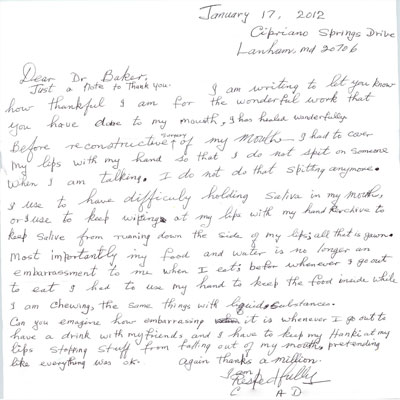 January 17, 2012
Cipriano Springs Drive
Lanham, Md 20706
Dear Dr. Baker,
Just a Note to Thank You. I am writing to let you know
how thankful I am for the wonderful work that
you have done to my mouth, It has healed wonderfully
Before reconstructive surgery of my mouth I had to cover
my lips with my hand so that I do not spit on someone
when I am talking. I do not do that spitting anymore.
I use to have difficuly holding Saliva in my mouth,
or I use to keep wiping at my lips with my hand kerchive to
keep Salive from running down the side of my lips, all that is gown.
Most importantly my food and water is no longer an
embarrassment to me when I eat, befor whenever I go out
to eat I had to use my hand to keep the food inside while
I am chewing, the same things with liquid substances.
Can you emagine how embarrasing it is whenever I go out to
have a drink with my friends, and I have to keep my Hanki at my
lips stopping stuff from falling out of my mouth, pretending
like everything was ok. again thanks a million.
I am
Respectfully
C A D